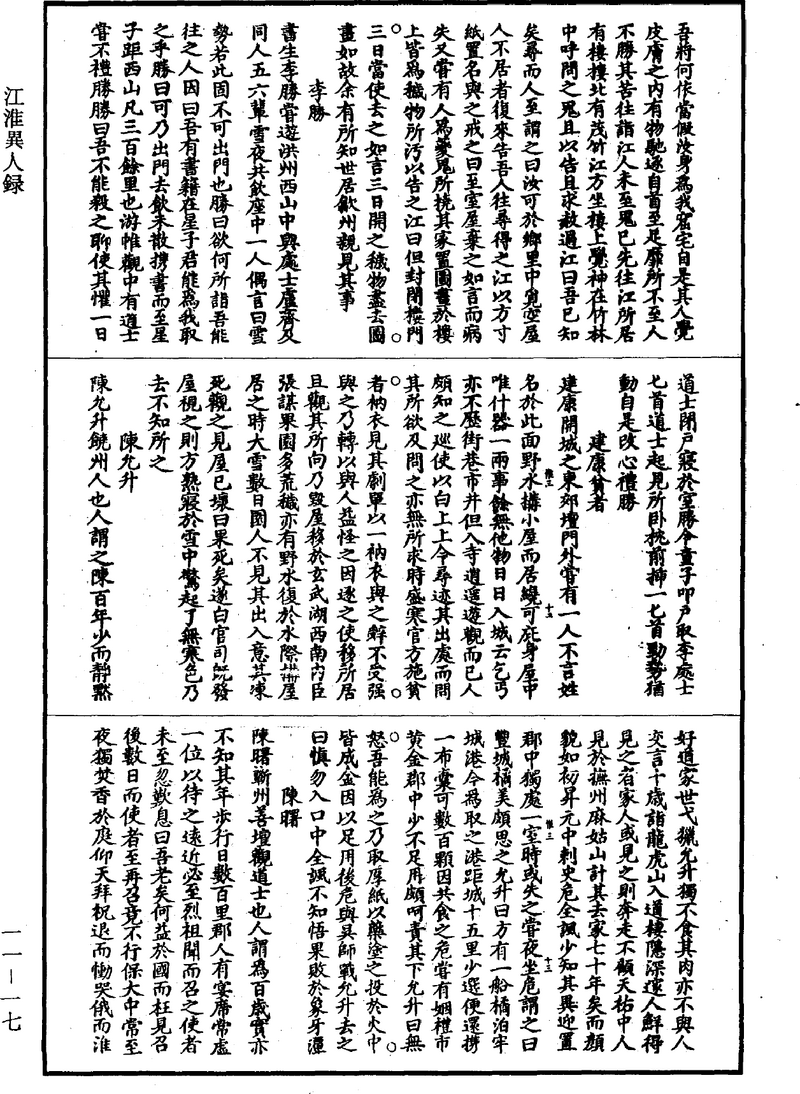 吾將何依當假汝身為我窟宅自是其人覺
皮膚之內有物馳逐自首至足靡所不至人
不勝其苦往詣江人未至鬼已先往江所居
有樓樓北有茂竹江方坐樓上覺神在竹林
中呼問之鬼且以告且求赦過江曰吾已知
矣尋而人至謂之曰汝可於鄉里中覓空屋
人不居者復來告吾人往尋得之江以方寸
紙置名與之戒之曰至室屋棄之如言而病
失又嘗有人為夔鬼所撓其家置圖畫於樓
上皆為穢物所污以告之江曰但封閉樓門
三日當使去之如言三日開之穢物盡去圖
畫如故余有所知世居歙州親見其事
李勝
書生李勝嘗遊洪州西山中與處士盧齊及
同人五六輩雪夜共飲座中一人偶言曰雪
勢若此固不可出門也勝曰欲何所詣吾能
往之人因曰吾有書籍在星子君能為我取
之乎勝曰可乃出門去飲未散攜書而至星
子距西山凡三百餘里也游帷觀中有道士
嘗不禮勝勝曰吾不能殺之聊使其懼一日
道士閉戶寢於室勝令童子叩戶取李處士
匕首道士起見所臥枕前插一匕首勁勢猶
動自是改心禮勝
建康貧者
建康關城之東郊壇門外嘗有一人不言姓
名於北面野水構小屋而居纔可庇身屋中
唯什器一兩事餘無他物日日入城云乞丐
亦不歷街巷市井但入寺逍遥遊觀而已人
頗知之巡使以白上上令尋迹其出處而問
其所欲及問之亦無所求時盛寒官方施貧
者衲衣見其劇單以一衲衣與之辭不受强
與之乃轉以與人益怪之因逐之使移所居
且觀其所向乃毀屋移於玄武湖西南內臣
張謀果園多荒穢亦有野水復於水際構屋
居之時大雪數日園人不見其出入意其凍
死觀之見屋已壞曰果死矣遂白官司既發
屋視之則方熟寢於雪中驚起了無寒色乃
去不知所之
陳允升
陳允升饒州人也人謂之陳百年少而靜默
好道家世弋獵允升獨不食其肉亦不與人
交言十歲詣龍虎山入道棲隱深邃人鮮得
見之者家人或見之則奔走不顧天祐中人
見於撫州麻姑山計其去家七十年矣而顏
貌如初昇元中刺史危全諷少知其異迎置
郡中獨處一室時或失之嘗夜坐危謂之曰
豐城橘美頗思之允升曰方有一船橘泊牢
城港今為取之港距城十五里少選便還攜
一布囊可數百顆因共食之危嘗有姻禮市
黃金郡中少不足用頗呵責其下允升曰無
怒吾能為之乃取厚紙以藥塗之投於火中
皆成金因以足用後危與吳師戰允升去之
曰慎勿入口中全諷不知悟果敗於象牙潭
陳曙
陳曙蘄州善壇觀道士也人謂為百歲實亦
不知其年步行日數百里郡人有宴席常虛
一位以待之遠近必至烈祖聞而召之使者
未至忽歎息曰吾老矣何益於國而枉見召
後數日而使者至再召竟不行保大中常至
夜獨焚香於庭仰天拜祝退而慟哭俄而淮
江淮異人録
一一—一七